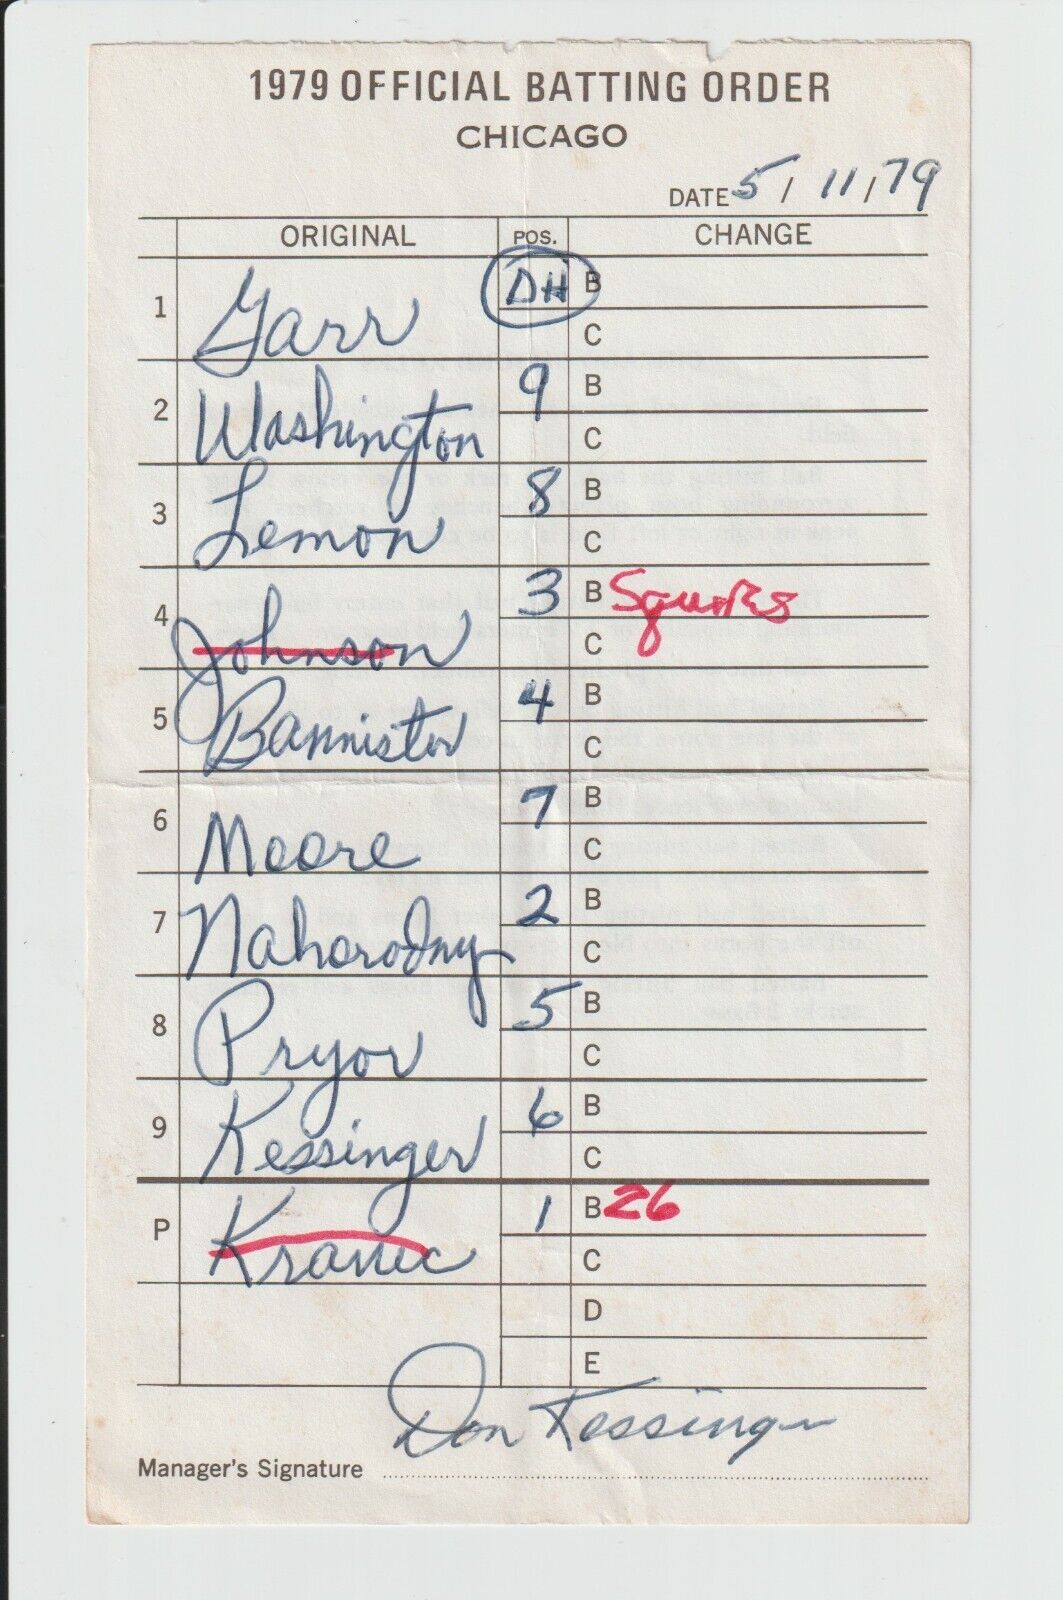 1979 OFFICIAL BATTING ORDER
CHICAGO
DATE 5/11/79
ORIGINAL POS. CHANGE
1 Garr DH B
C
2 Washington 9 B
C
3 Lemon 8 B
C
4 Johnson 3 B Squires
C
5 Bannister 4 B
C
6 Moore 7 B
C
7 Nahorodny 2 B
C
8 Pryor 5 B
C
9 Kessinger 6 B
C
P Kravec 1 B 26
C
D
E
Don Kessinger
Manager's Signature